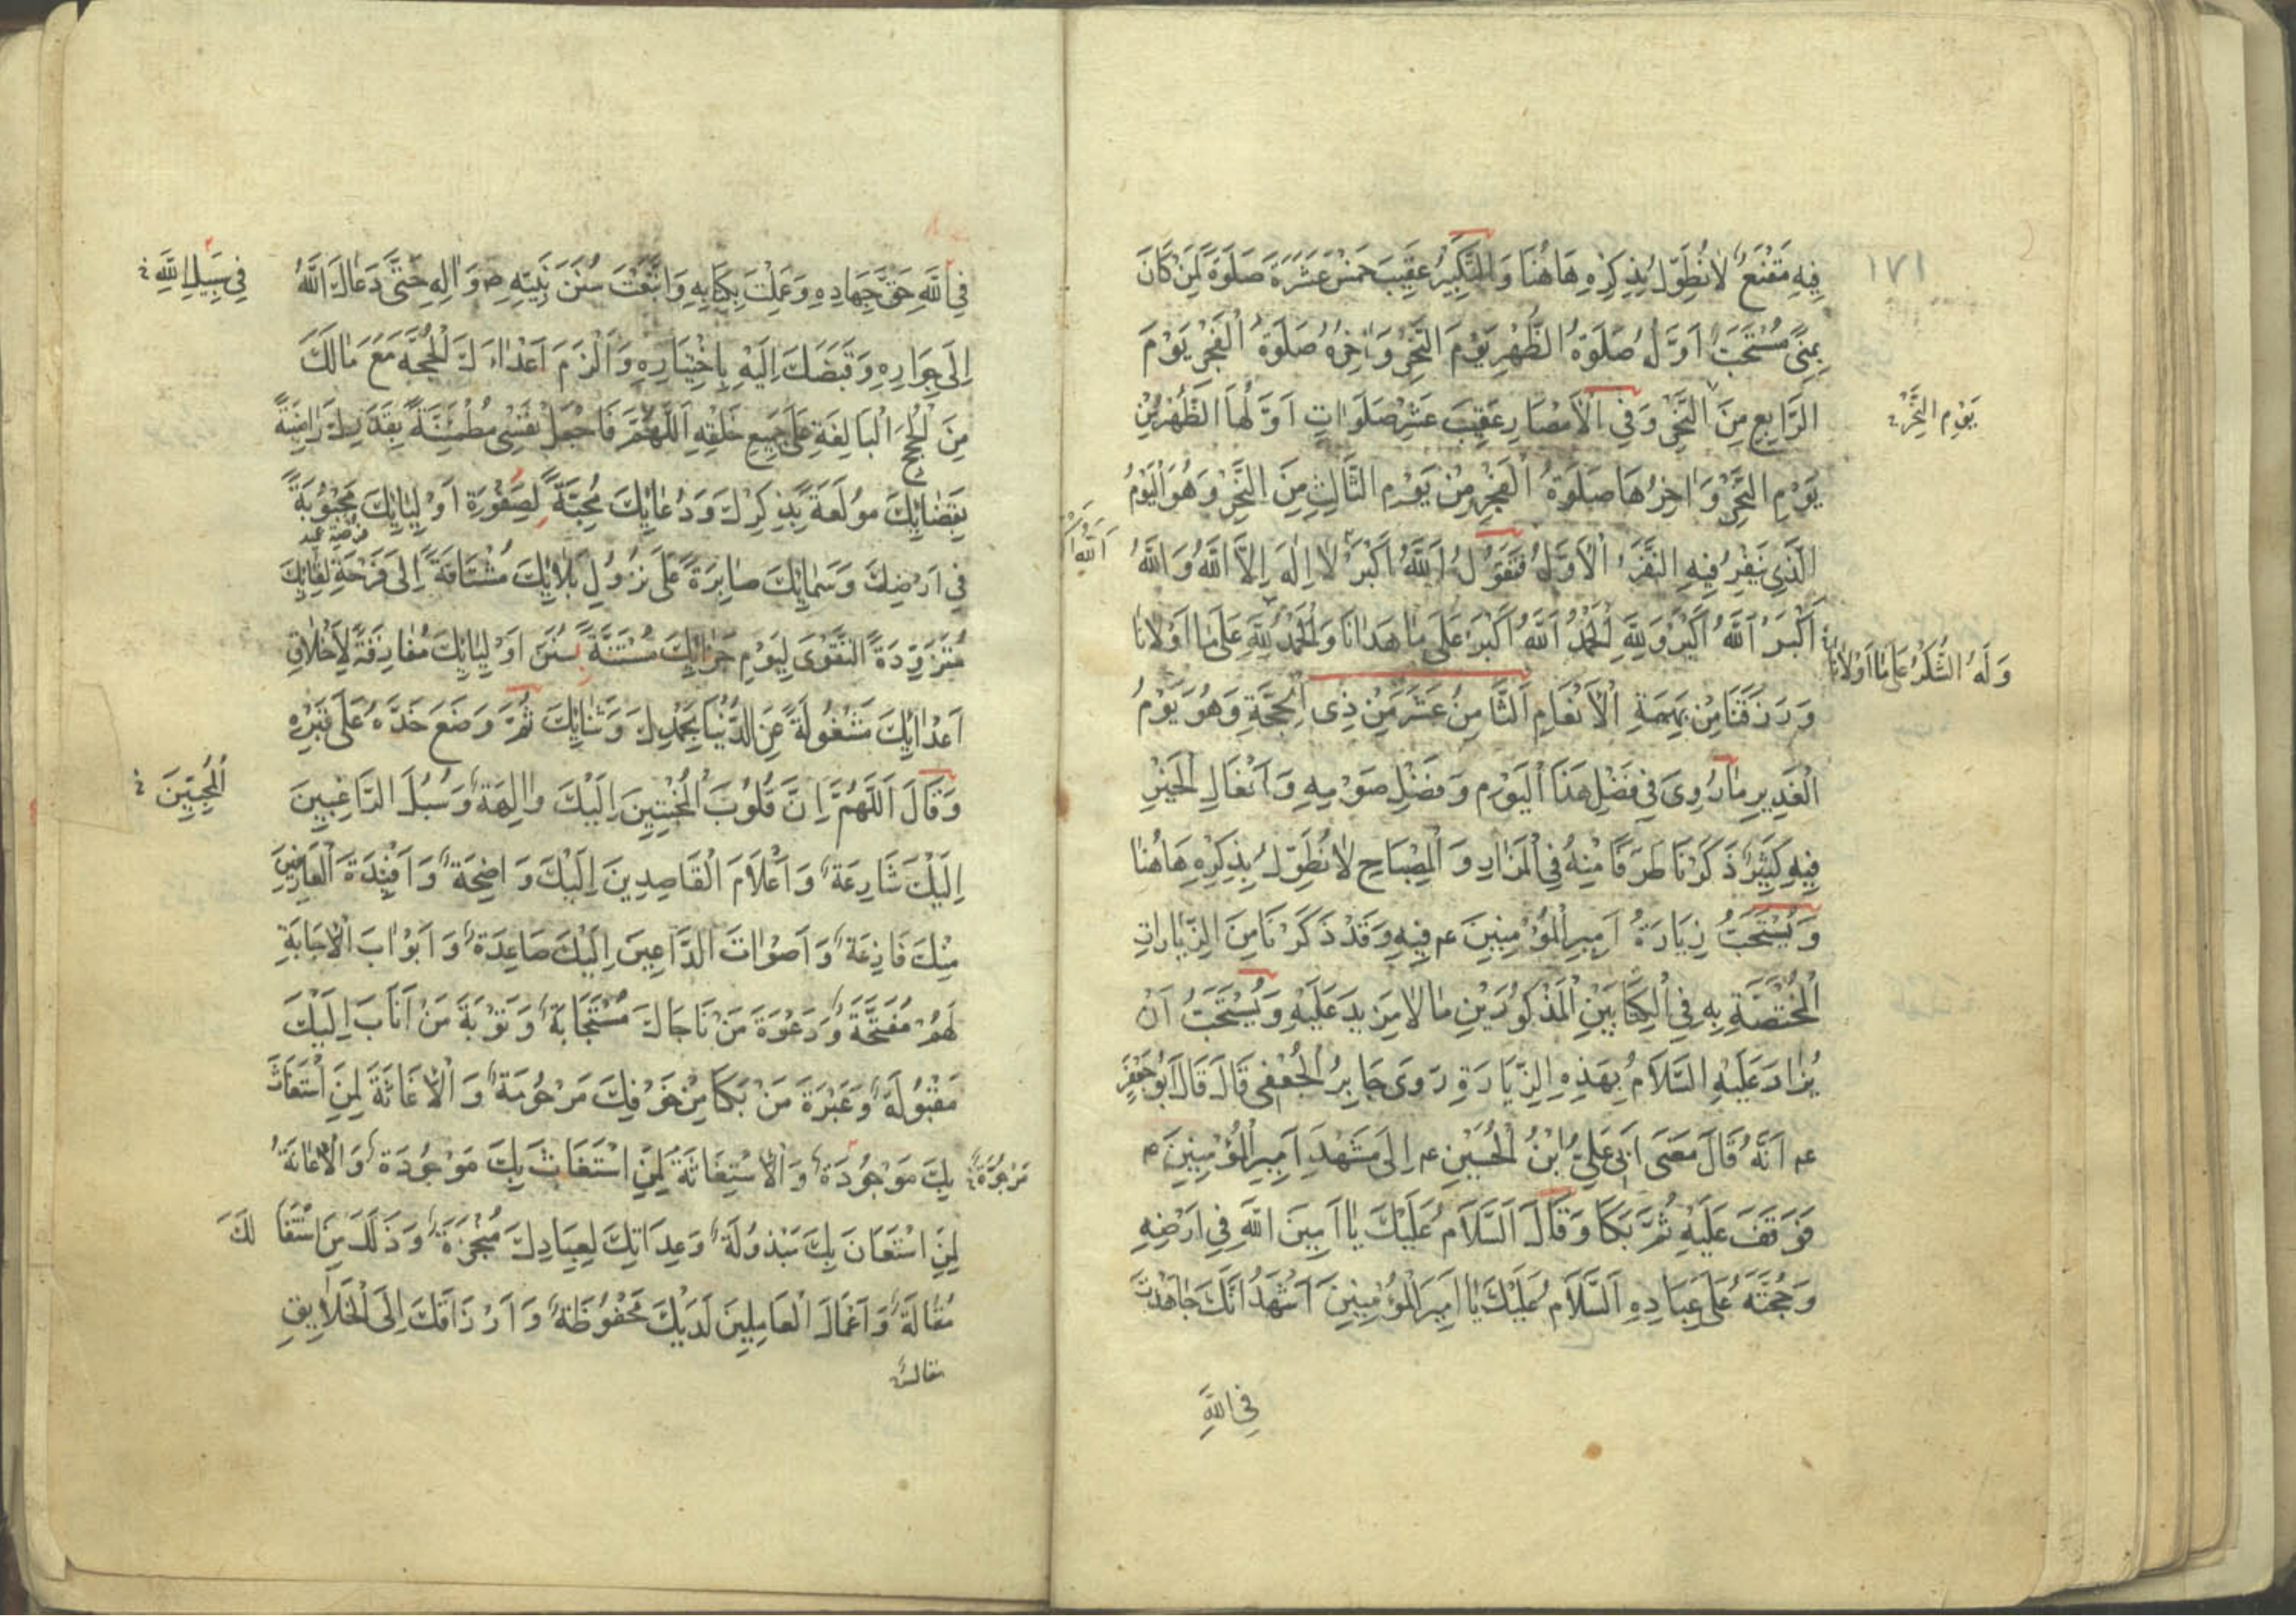 ١٧١
فِيهِ مَقْنَعٌ لَا نُطَوِّلُ بِذِكْرِهِ هَاهُنَا وَالتَّكْبِيرُ عَقِيبَ خَمْسَ عَشْرَةَ صَلَوةً لِمَنْ كَانَ
بِمِنًى مُسْتَحَبٌّ اَوَّلُ صَلَوةُ الظُّهْرِ يَوْمَ النَّحْرِ وَاٰخِرُهُ صَلَوةُ الْفَجْرِ يَوْمَ
الرَّابِعِ مِنَ النَّحْرِ وَفِي الْاَمْصَارِ عَقِيبَ عَشْرِ صَلَوَاتٍ اَوَّلُهَا الظُّهْرُ مِنْ
يَوْمِ النَّحْرِ
يَوْمِ النَّحْرِ وَاٰخِرُهَا صَلَوةُ الْفَجْرِ مِنْ يَوْمِ الثَّالِثِ مِنَ النَّحْرِ وَهُوَ الْيَوْمُ
الَّذِي يَنْفِرُ فِيهِ النَّفْرَ الْاَوَّلُ فَتَقُولُ اَللّٰهُ اَكْبَرُ لَا اِلٰهَ اِلَّا اللّٰهُ وَاللّٰهُ
اَكْبَرُ اَللّٰهُ اَكْبَرُ وَلِلّٰهِ الْحَمْدُ اَللّٰهُ اَكْبَرُ عَلَى مَا هَدَانَا وَالْحَمْدُ لِلّٰهِ عَلَى مَا اَوْلَانَا
وَلَهُ الشُّكْرُ عَلَى مَا اَوْلَانَا
وَرَزَقَنَا مِنْ بَهِيمَةِ الْاَنْعَامِ اَلثَّامِنُ عَشَرَ مِنْ ذِي الْحِجَّةِ وَهُوَ يَوْمُ
الْغَدِيرِ مَا رُوِيَ فِي فَضْلِ هَذَا الْيَوْمِ وَفَضْلِ صَوْمِهِ وَاَفْعَالِ الْخَيْرِ
فِيهِ كَثِيرٌ ذَكَرْنَا طَرَفًا مِنْهُ فِي الْمَزَارِ وَالْمِصْبَاحِ لَا نُطَوِّلُ بِذِكْرِهِ هَاهُنَا
وَيُسْتَحَبُّ زِيَارَةُ اَمِيرِ الْمُؤْمِنِينَ عم فِيهِ وَقَدْ ذَكَرْنَا مِنَ الزِّيَارَاتِ
الْمُخْتَصَّةِ بِهِ فِي الْكِتَابَيْنِ الْمَذْكُورَيْنِ مَا لَا مَزِيدَ عَلَيْهِ وَيُسْتَحَبُّ اَنْ
يُزَادَ عَلَيْهِ السَّلَامُ بِهَذِهِ الزِّيَارَةِ رَوَى جَابِرُ الْجُعْفِي قَالَ قَالَ اَبُو جَعْفَرٍ
عم اَنَّهُ قَالَ مَضَى اَبِي عَلِيُّ ابْنُ الْحُسَيْنِ عم اِلَى مَشْهَدِ اَمِيرِ الْمُؤْمِنِينَ عم
فَوَقَفَ عَلَيْهِ ثُمَّ بَكَا وَقَالَ اَلسَّلَامُ عَلَيْكَ يَا اَمِينَ اللّٰهِ فِي اَرْضِهِ
وَحُجَّتَهُ عَلَى عِبَادِهِ اَلسَّلَامُ عَلَيْكَ يَا اَمِيرَ الْمُؤْمِنِينَ اَشْهَدُ اَنَّكَ جَاهَدْتَ
فِي اللّٰهِ
فِي اللّٰهِ حَقَّ جِهَادِهِ وَعَمِلْتَ بِكِتَابِهِ وَاتَّبَعْتَ سُنَنَ نَبِيِّهِ ص وَاٰلِهِ حَتَّى دَعَاكَ اللّٰهُ
فِي سَبِيلِ اللّٰهِ
اِلَى جِوَارِهِ وَقَبَضَكَ اِلَيْهِ بِاخْتِيَارِهِ وَاَلْزَمَ اَعْدَاءَكَ الْحُجَّةَ مَعَ مَا لَكَ
مِنَ الْحُجَجِ الْبَالِغَةِ عَلَى جَمِيعِ خَلْقِهِ اَللّٰهُمَّ فَاجْعَلْ نَفْسِي مُطْمَئِنَّةً بِقَدَرِكَ رَاضِيَةً
بِقَضَائِكَ مُولَعَةً بِذِكْرِكَ وَدُعَائِكَ مُحِبَّةً لِصَفْوَةِ اَوْلِيَائِكَ مَحْبُوبَةً
فِي اَرْضِكَ وَسَمَائِكَ صَابِرَةً عَلَى نُزُولِ بَلَائِكَ مُشْتَاقَةً اِلَى فَرْحَةِ لِقَائِكَ
مُتَزَوِّدَةً التَّقْوَى لِيَوْمِ جَزَائِكَ مُسْتَنَّةً بِسُنَنِ اَوْلِيَائِكَ مُفَارِقَةً لِاَخْلَاقِ
اَعْدَائِكَ مَشْغُولَةً عَنِ الدُّنْيَا بِحَمْدِكَ وَثَنَائِكَ ثُمَّ وَضَعَ خَدَّهُ عَلَى قَبْرِهِ
وَقَالَ اَللّٰهُمَّ اِنَّ قُلُوبَ الْمُخْبِتِينَ اِلَيْكَ وَالِهَةٌ وَسُبُلَ الرَّاغِبِينَ
الْمُحِبِّينَ
اِلَيْكَ شَارِعَةٌ وَاَعْلَامَ الْقَاصِدِينَ اِلَيْكَ وَاضِحَةٌ وَاَفْئِدَةَ الْعَارِفِينَ
مِنْكَ فَازِعَةٌ وَاَصْوَاتَ الدَّاعِينَ اِلَيْكَ صَاعِدَةٌ وَاَبْوَابَ الْاِجَابَةِ
لَهُمْ مُفَتَّحَةٌ وَدَعْوَةَ مَنْ نَاجَاكَ مُسْتَجَابَةٌ وَتَوْبَةَ مَنْ اَنَابَ اِلَيْكَ
مَقْبُولَةٌ وَعَبْرَةَ مَنْ بَكَا مِنْ خَوْفِكَ مَرْحُومَةٌ وَالْاِغَاثَةَ لِمَنِ اسْتَغَاثَ
بِكَ مَوْجُودَةٌ وَالْاِسْتِغَاثَةَ لِمَنِ اسْتَغَاثَ بِكَ مَوْجُودَةٌ وَالْاِعَانَةَ
لِمَنِ اسْتَعَانَ بِكَ مَبْذُولَةٌ وَعِدَاتِكَ لِعِبَادِكَ مُنْجَزَةٌ وَزَلَلَ مَنِ اسْتَقَالَكَ
مُقَالَةٌ وَاَعْمَالَ الْعَامِلِينَ لَدَيْكَ مَحْفُوظَةٌ وَاَرْزَاقَكَ اِلَى الْخَلَايِقِ